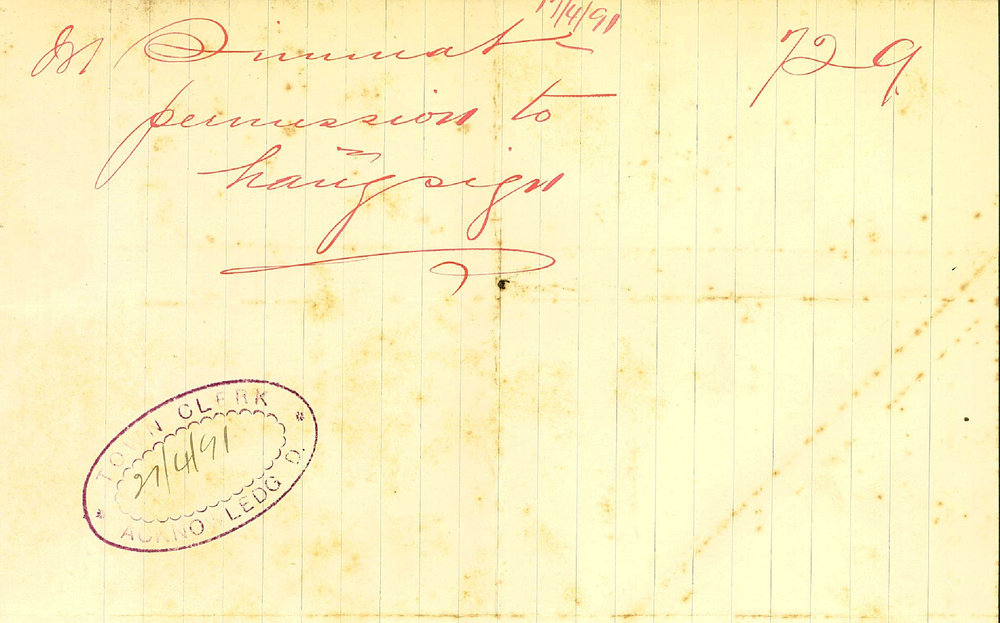 17/4/91
729
permission to
hang sign
TOWN CLERK
27/4/91
ACKNOWLEDG'D.